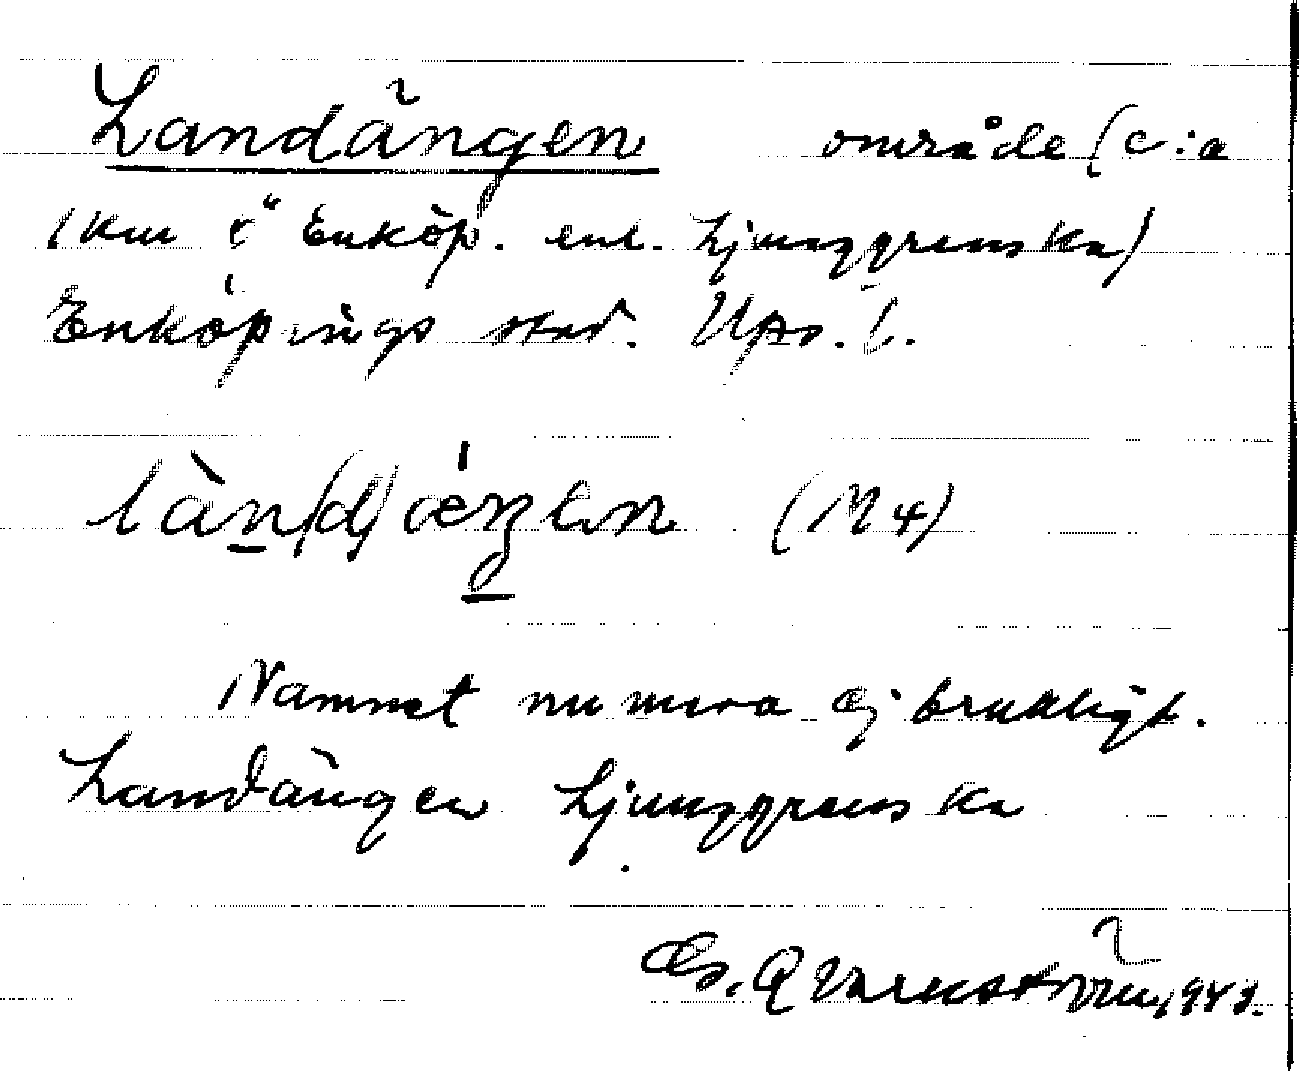 Landängen område (c:a
1 km ö Enköp. enl. Ljunggrenska)
Enköpings stad. Ups. l.
làn(d)æŋen (M4)
Namnet numera ej brukligt.
Landängen Ljunggrenska
G. Qvarnström